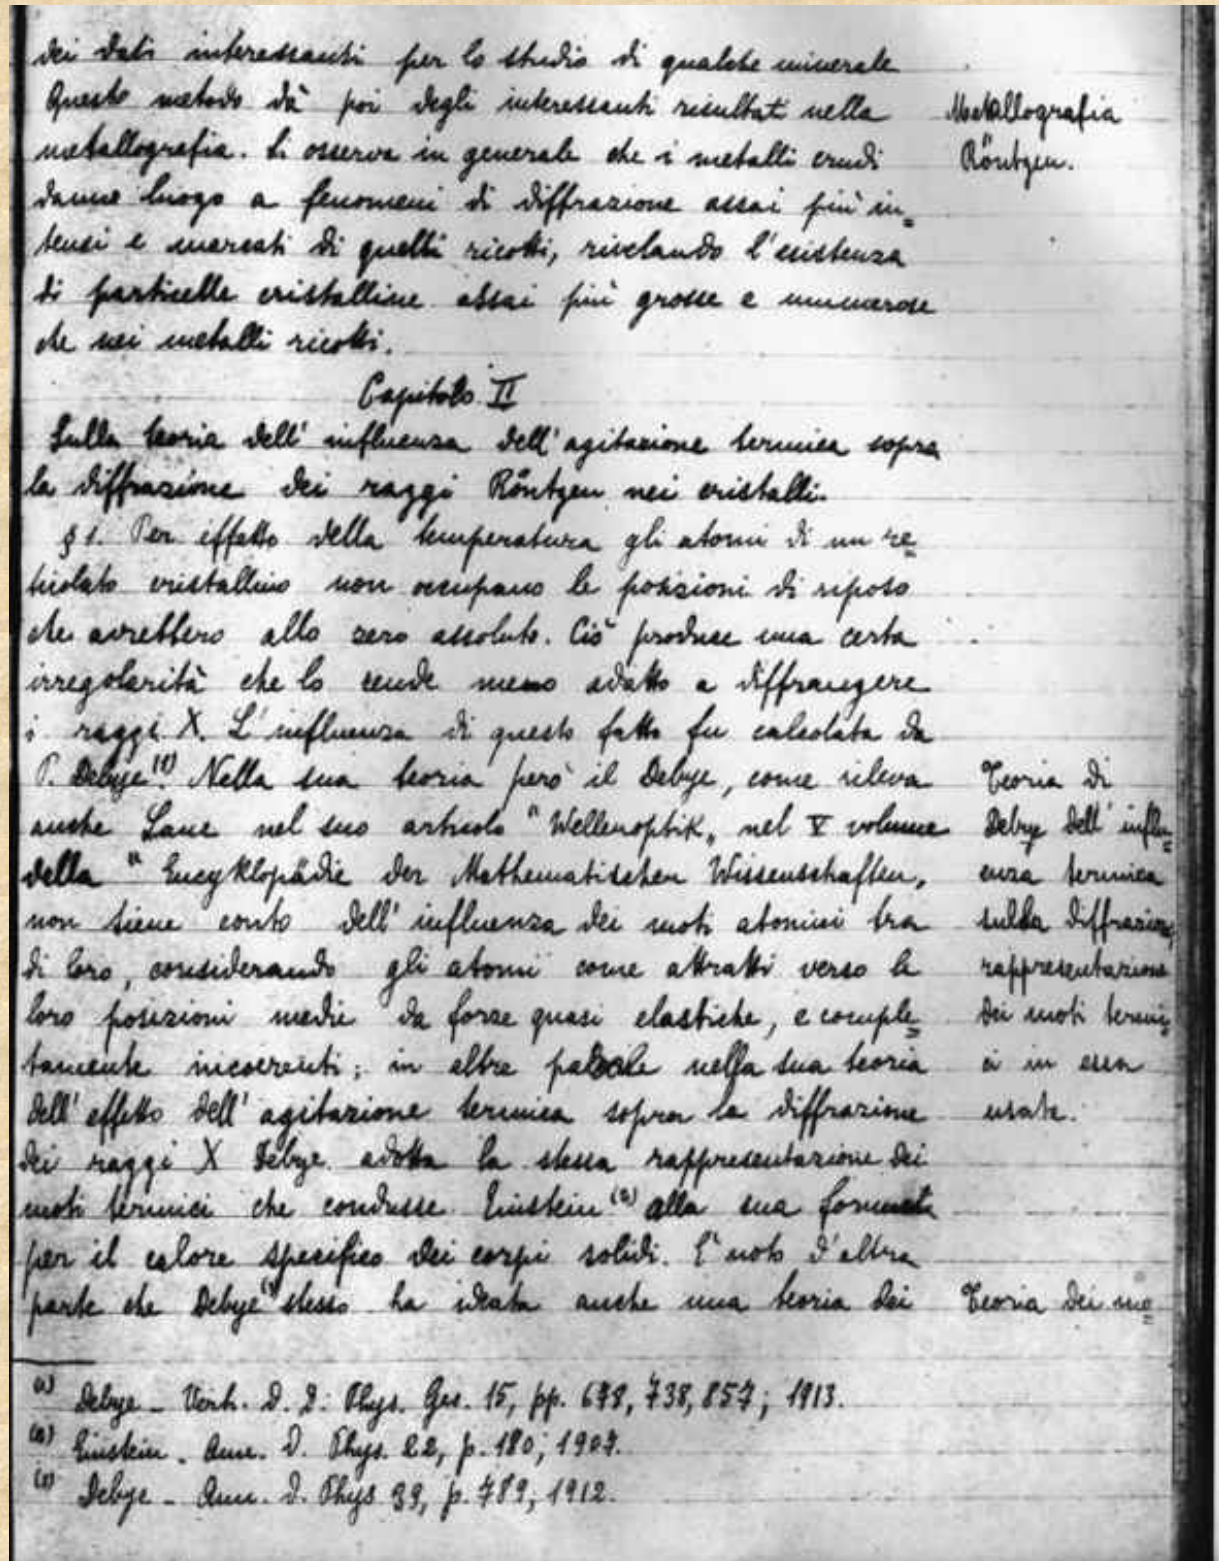 dei dati interessanti per lo studio di qualche minerale
Questo metodo dà poi degli interessanti risultati nella
metallografia. Si osserva in generale che i metalli crudi
danno luogo a fenomeni di diffrazione assai più in=
tensi e marcati di quelli ricotti, rivelando l'esistenza
di particelle cristalline assai più grosse e numerose
che nei metalli ricotti.
Metallografia
Röntgen.
Capitolo II
Sulla teoria dell'influenza dell'agitazione termica sopra
la diffrazione dei raggi Röntgen nei cristalli.
§ 1. Per effetto della temperatura gli atomi di un re=
ticolato cristallino non occupano le posizioni di riposo
che avrebbero allo zero assoluto. Ciò produce una certa
irregolarità che lo rende meno adatto a diffrangere
i raggi X. L'influenza di questo fatto fu calcolata da
P. Debye (1). Nella sua teoria però il Debye, come rileva
anche Laue nel suo articolo "Wellenoptik„ nel V volume
della "Encyklopädie der Mathematischen Wissenschaften,
non tiene conto dell'influenza dei moti atomici tra
di loro, considerando gli atomi come attratti verso le
loro posizioni medie da forze quasi elastiche, e comple=
tamente incoerenti; in altre parole nella sua teoria
dell'effetto dell'agitazione termica sopra la diffrazione
dei raggi X Debye adotta la stessa rappresentazione dei
moti termici che condusse Einstein (2) alla sua formula
per il calore specifico dei corpi solidi. È noto d'altra
parte che Debye (3) stesso ha ideata anche una teoria dei
Teoria di
Debye dell'influ=
enza termica
sulla diffrazione,
rappresentazione
dei moti termi=
ci in essa
usata.
Teoria dei mo=
(1) Debye - Verh. D. D. Phys. Ges. 15, pp. 678, 738, 857; 1913.
(2) Einstein - Ann. d. Phys. 22, p. 180; 1907.
(3) Debye - Ann. d. Phys 39, p. 789, 1912.